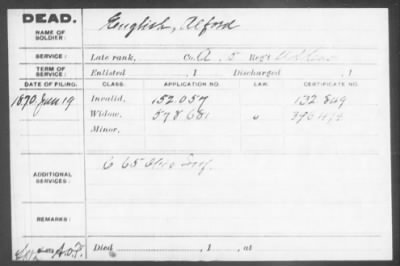 DEAD.
NAME OF SOLDIER: English, Alford
SERVICE: Late rank, Co. A. 5 Reg't
TERM OF SERVICE: Enlisted , 1 Discharged , 1
DATE OF FILING. CLASS. APPLICATION NO. LAW. CERTIFICATE NO.
1870 Jan 19 Invalid, 152.057
Widow, 578.681
Minor,
ADDITIONAL SERVICES: 65 Ohio Inf.
REMARKS:
Died , 1 , at